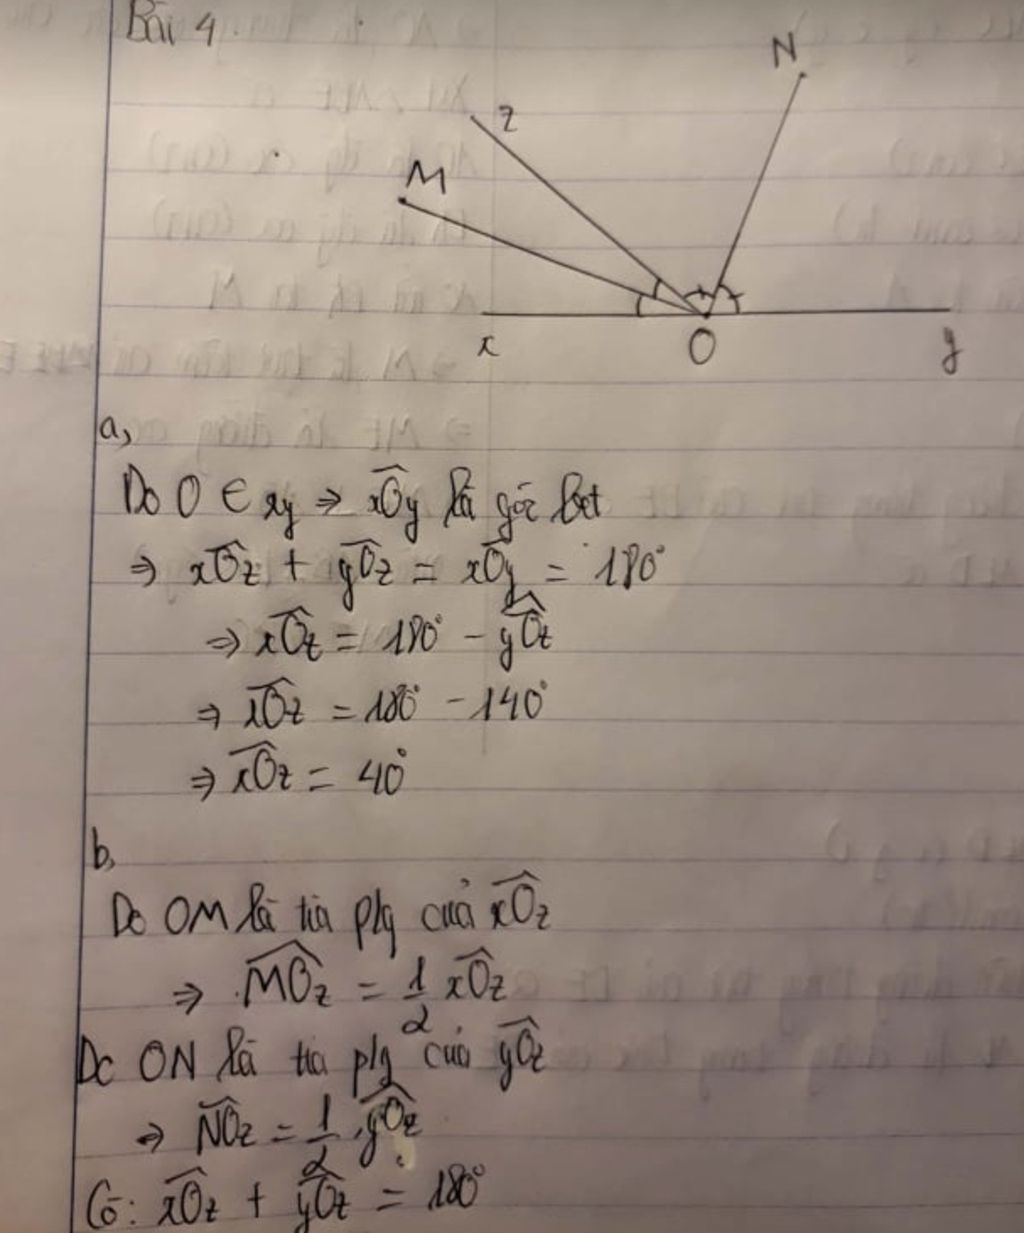 Bài 4
N
z
M
x
O
y
a,
Do O ∈ xy ⇒ xÔy là góc bẹt
⇒ xÔz + yÔz = xÔy = 180°
⇒ xÔz = 180° - yÔz
⇒ xÔz = 180° - 140°
⇒ xÔz = 40°
b,
Do OM là tia plg của xÔz
⇒ MÔz = 1/2 xÔz
Do ON là tia plg của yÔz
⇒ NÔz = 1/2 . yÔz
Có: xÔz + yÔz = 180°